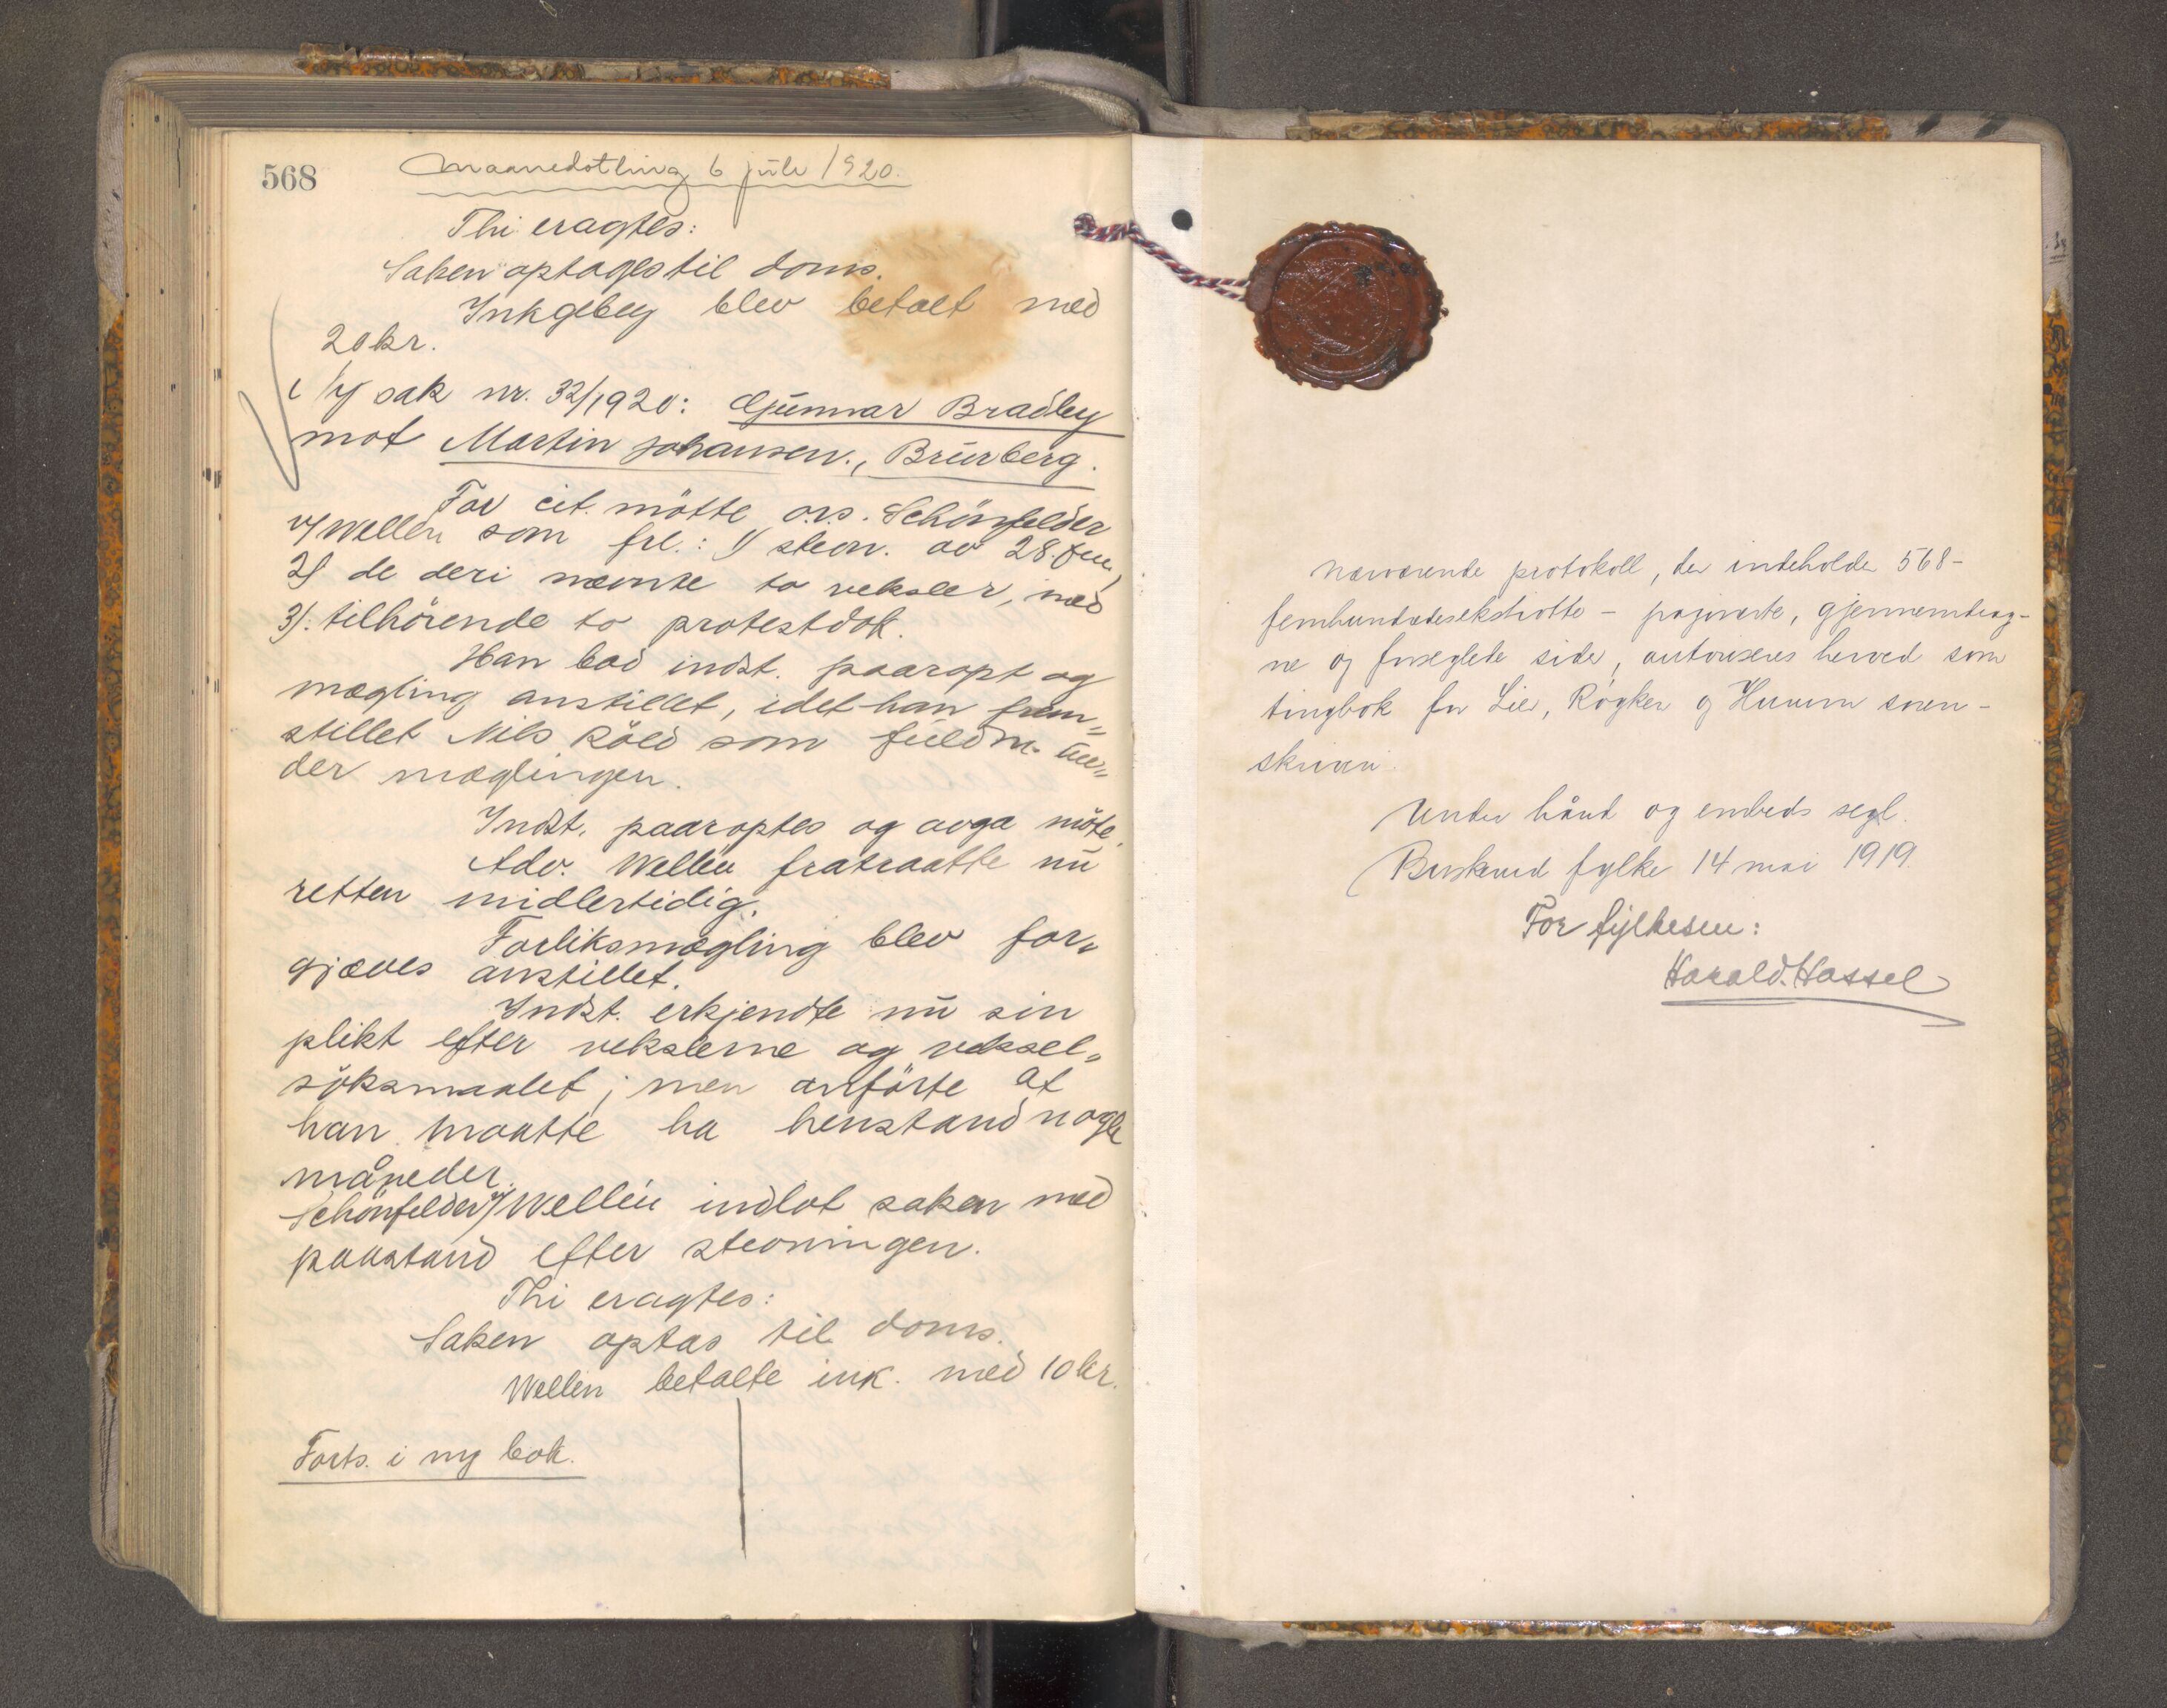 568
Maanedsthing 6 juli 1920.
Thi eragtes:
Saken optages til doms.
Inkgeby blev betalt med
20 kr.
i ny sak nr. 32/1920: Gunnar Bradby
mot Martin Johansen., Brurberg.
For cit. mötte o.r.s. Schönfelder
v/ Wellén som frl.: 1) stevn. av 28. juni,
2) de deri nævnte to veksler, med
3). tilhörende to protestdok.
Han bad indst. paaropt og
mægling anstillet, idet han frem„
stillet Nils Röed som fuldm. un„
der mæglingen.
Indst. paaroptes og avga möte.
Adv. Wellén fratraatte nu
retten midlertidig.
Forliksmægling blev for„
gjæves anstillet.
Indst. erkjendte nu sin
plikt efter vekslerne og veksel„
söksmaalet; men anförte at
han maatte ha henstand nogle
måneder.
Schönfelder v/ Wellén indlot saken med
paastand efter stevningen.
Thi eragtes:
Saken optas til doms.
Wellén betalte ink. med 10 kr.
Forts. i ny bok.
Nærværende protokoll, der indeholder 568-
femhundredesekstiotte - paginerte, gjennemdrag-
ne og forseglede sider, autoriseres herved som
tingbok for Lier, Røyken og Hurum soren-
skriveri.
Under hånd og embeds segl.
Buskerud fylke 14 mai 1919
For fylkesm:
Harald. Hassel